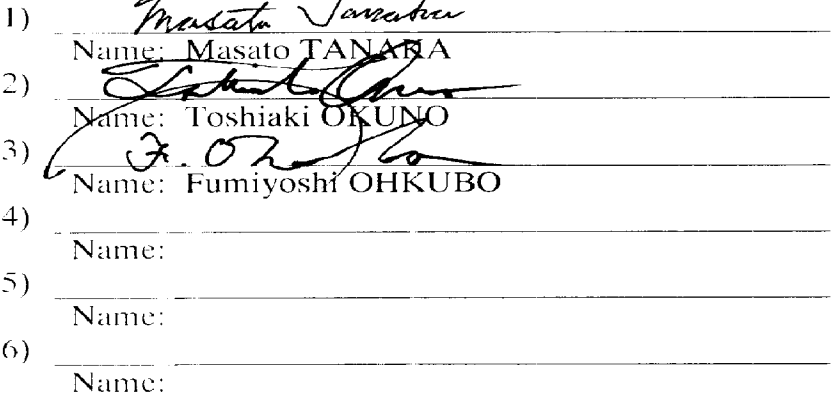 1) Masato Tanaka
Name: Masato TANAKA
2) Toshiaki Okuno
Name: Toshiaki OKUNO
3) F. Ohkubo
Name: Fumiyoshi OHKUBO
4)
Name:
5)
Name:
6)
Name: